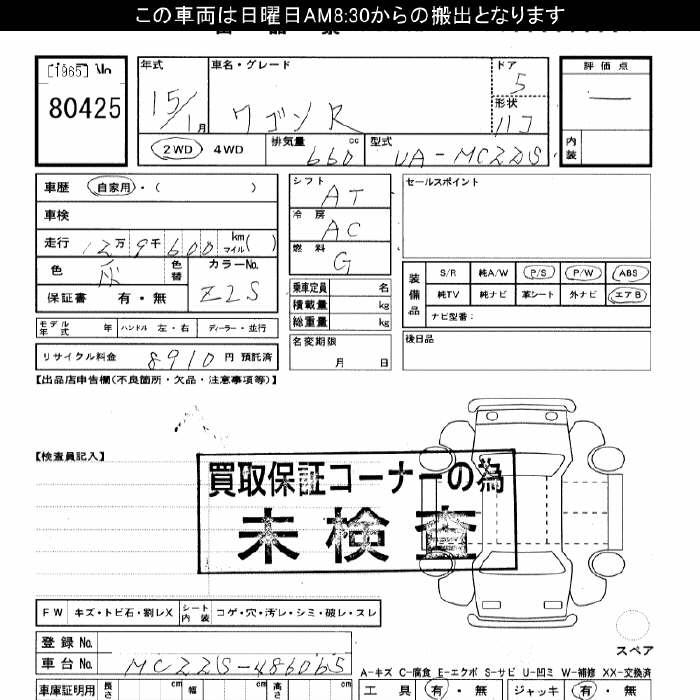 この車両は日曜日AM8:30からの搬出となります
[1965] No
80425
年式 15/1月
車名・グレード ワゴンR
ドア 5
形状 ハコ
評価点 —
内装
2WD 4WD
排気量 660 cc
型式 UA-MCZZS
車歴 自家用・( )
車検
走行 12万9千600 km マイル( )
色 灰 色替
カラーNo. Z2S
保証書 有・無
モデル年式 年 ハンドル 左・右 ディーラー・並行
リサイクル料金 8910 円 預託済
シフト AT
冷房 AC
燃料 G
乗車定員 名
積載量 kg
総重量 kg
名変期限 月 日
セールスポイント
装備品
S/R 純A/W P/S P/W ABS
純TV 純ナビ 革シート 外ナビ エアB
ナビ型番:
後日品
【出品店申告欄(不良箇所・欠品・注意事項等)】
【検査員記入】
買取保証コーナーの為
未検査
FW キズ・トビ石・割レX シート内装 コゲ・穴・汚レ・シミ・破レ・スレ
スペア
登録No.
車台No. MCZZS-486065
A-キズ C-腐食 E-エクボ S-サビ U-凹ミ W-補修 XX-交換済
車庫証明用 長さ cm 幅 cm 高さ cm
工具 有・無 ジャッキ 有・無